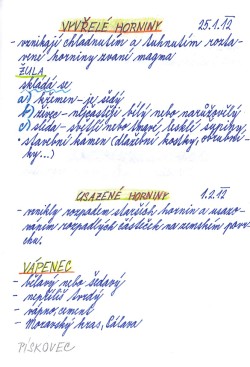 VYVŘELÉ HORNINY 25.1.12
- vznikají chladnutím a tuhnutím rozta-
vené horniny zvané magma
ŽULA
skládá se
a) křemen - je šedý
b) živec - nejčastěji bílý nebo narůžovělý
c) slída - světlé nebo tmavé, lesklé šupinky
- stavební kámen (dlažební kostky, obrubní-
ky...)
USAZENÉ HORNINY 1.2.12
- vznikly rozpadem starších hornin a usazo-
váním rozpadlých částeček na zemském povr-
chu.
VÁPENEC
- bělavý nebo šedavý
- nepříliš tvrdý
- vápno, cement
- Moravský kras, Pálava
PÍSKOVEC